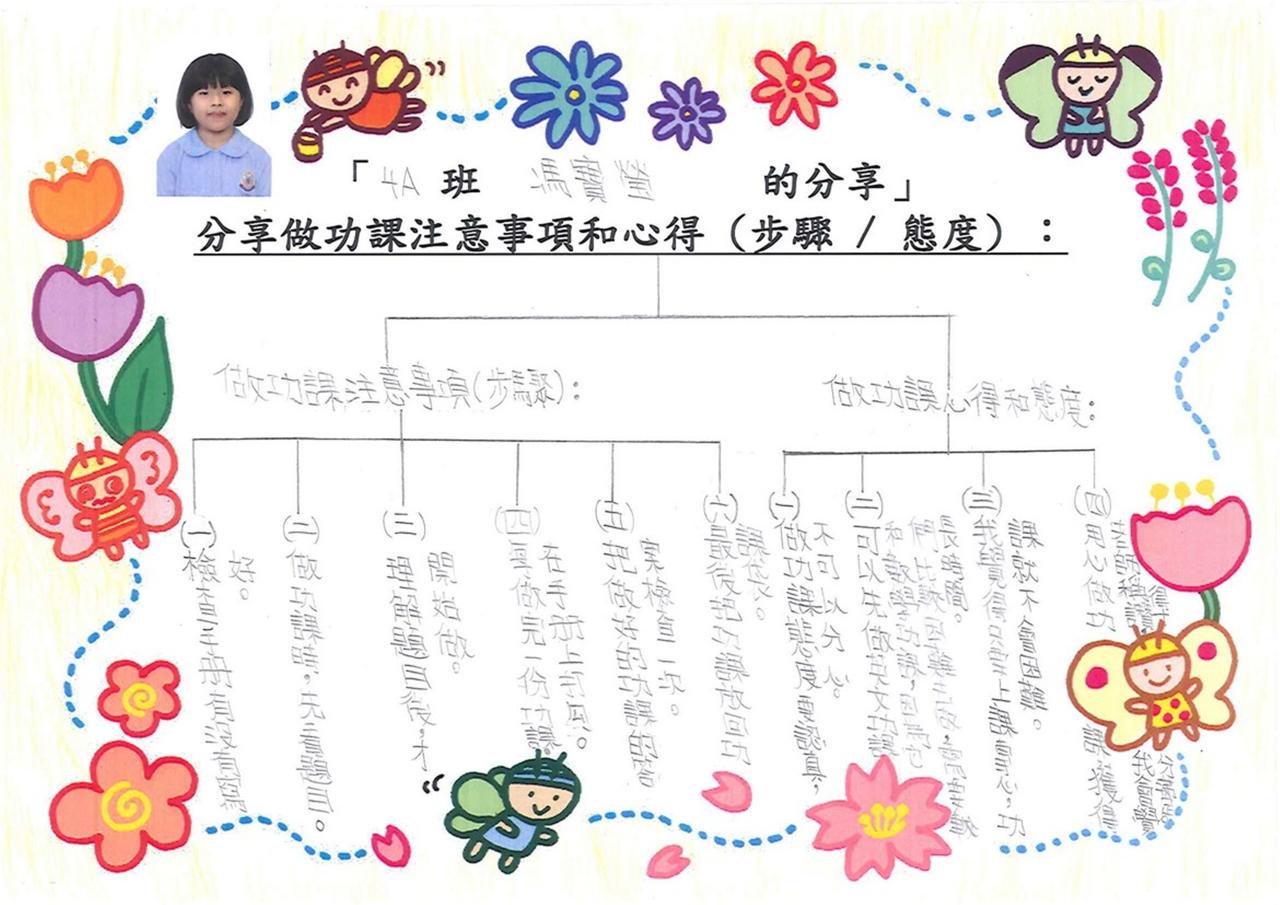 「4A 班 馮寶瑩 的分享」
分享做功課注意事項和心得（步驟 / 態度）：
做功課注意事項(步驟)：
(一)檢查手冊有沒有寫
好。
(二)做功課時，先看題目。
(三)理解題目後，才
開始做。
(四)要做完一份功課
在手冊上打瓜。
(五)把做好的功課的答
案檢查一次。
(六)最後把功課放回功
課袋。
做功課心得和態度：
(一)做功課態度要認真，
不可以分心。
(二)可以先做英文功課
和數學功課，因為它
們比較困難去做，需要花
長時間。
(三)我覺得只要上課專心，功
課就不會困難。
(四)用心做功